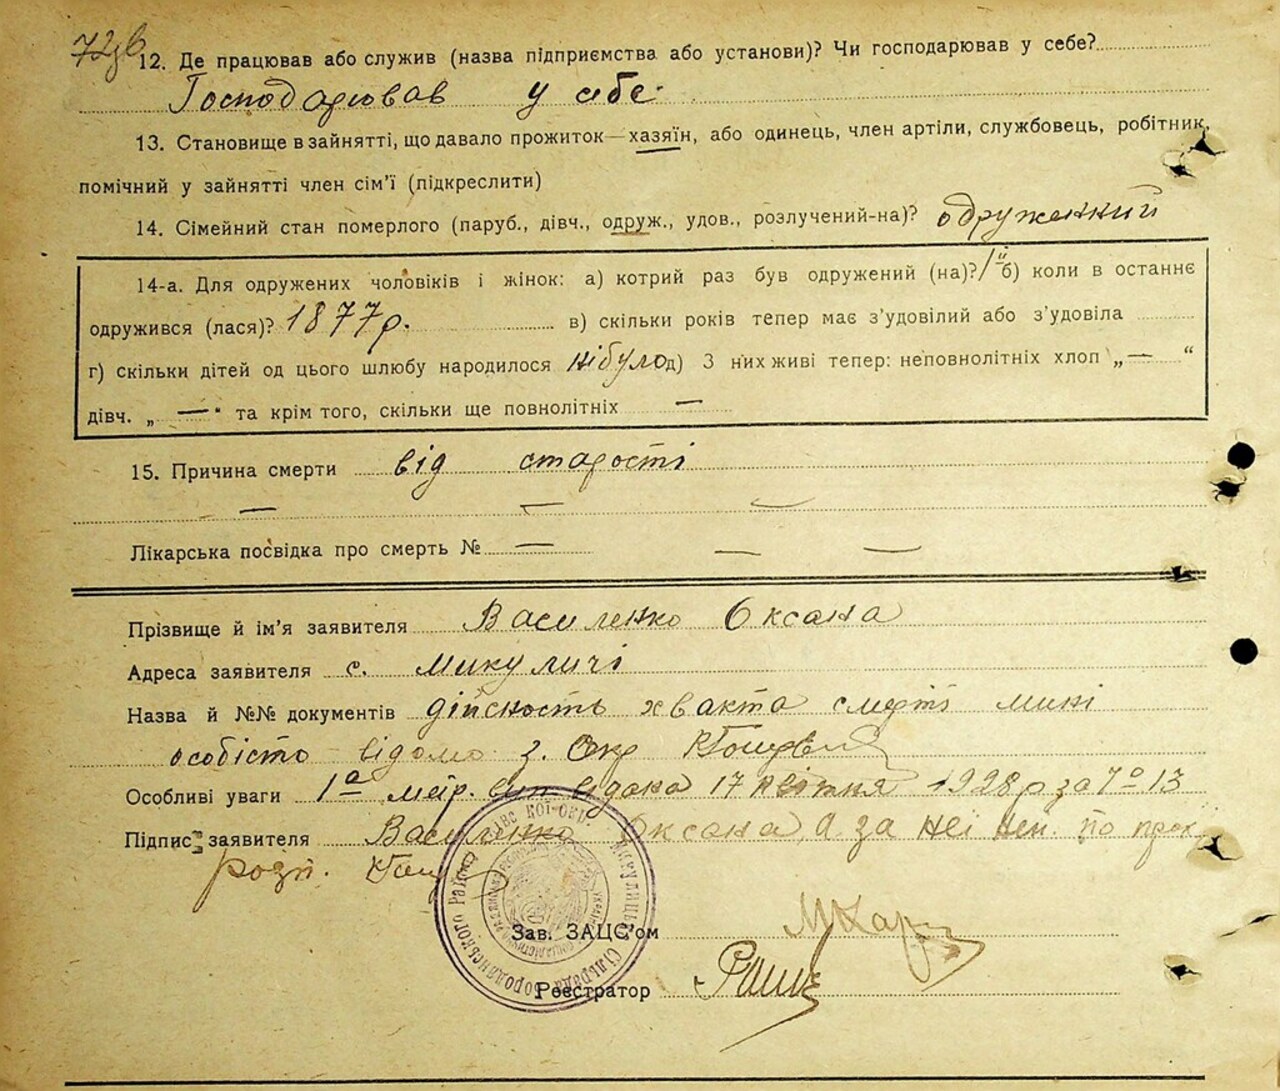 72зв
12. Де працював або служив (назва підприємства або установи)? Чи господарював у себе?
Господарював у себе
13. Становище в зайнятті, що давало прожиток — хазяїн, або одинець, член артілі, службовець, робітник,
помічний у зайнятті член сім'ї (підкреслити)
14. Сімейний стан померлого (паруб., дівч., одруж., удов., розлучений-на)? одруженний
14-а. Для одружених чоловіків і жінок: а) котрий раз був одружений (на)? Iй б) коли в останнє
одружився (лася)? 1877 р. в) скільки років тепер має з'удовілий або з'удовіла
г) скільки дітей од цього шлюбу народилося нібуло д) З них живі тепер: неповнолітніх хлоп „ — “
дівч. „ — “ та крім того, скільки ще повнолітніх —
15. Причина смерти від старості
— — —
Лікарська посвідка про смерть № — — —
Прізвище й ім'я заявителя Василенко Оксана
Адреса заявителя с. Микуличі
Назва й №№ документів дійсность хвакта смерті мині
особісто відомо з.
Особливі уваги 1а видана 17 квітня 1928 р за № 13
Підпис заявителя Василенко Оксана, а за неї
розп.
Зав. ЗАЦС'ом
Реєстратор